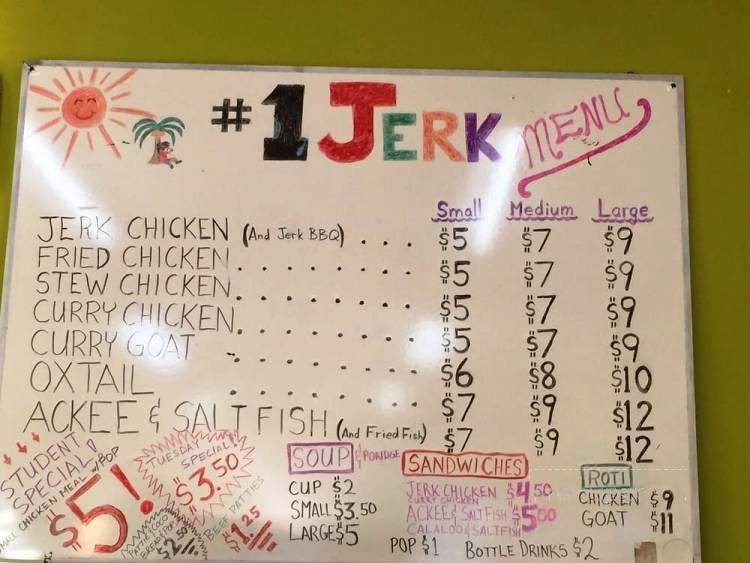 #1 JERK MENU
Small Medium Large
JERK CHICKEN (And Jerk BBQ) . . . $5 $7 $9
FRIED CHICKEN . . . . . . . $5 $7 $9
STEW CHICKEN . . . . . . . $5 $7 $9
CURRY CHICKEN . . . . . . . $5 $7 $9
CURRY GOAT . . . . . . . $6 $8 $10
OXTAIL . . . . . . . $7 $9 $12
ACKEE & SALTFISH (And Fried Fish) $7 $9 $12
STUDENT
SPECIAL!
SMALL CHICKEN MEAL w/POP
$5!
TUESDAY
SPECIAL!
$3.50
PATTIE COCO
BREAD & POP
$2.50
BEEF PATTIES
$1.25
SOUP & PORIDGE
CUP $2
SMALL $3.50
LARGE $5
SANDWICHES
JERK CHICKEN $4.50
CURRY CHICKEN
ACKEE & SALTFISH $5.00
CALALOO & SALTFISH
POP $1 BOTTLE DRINKS $2
ROTI
CHICKEN $9
GOAT $11